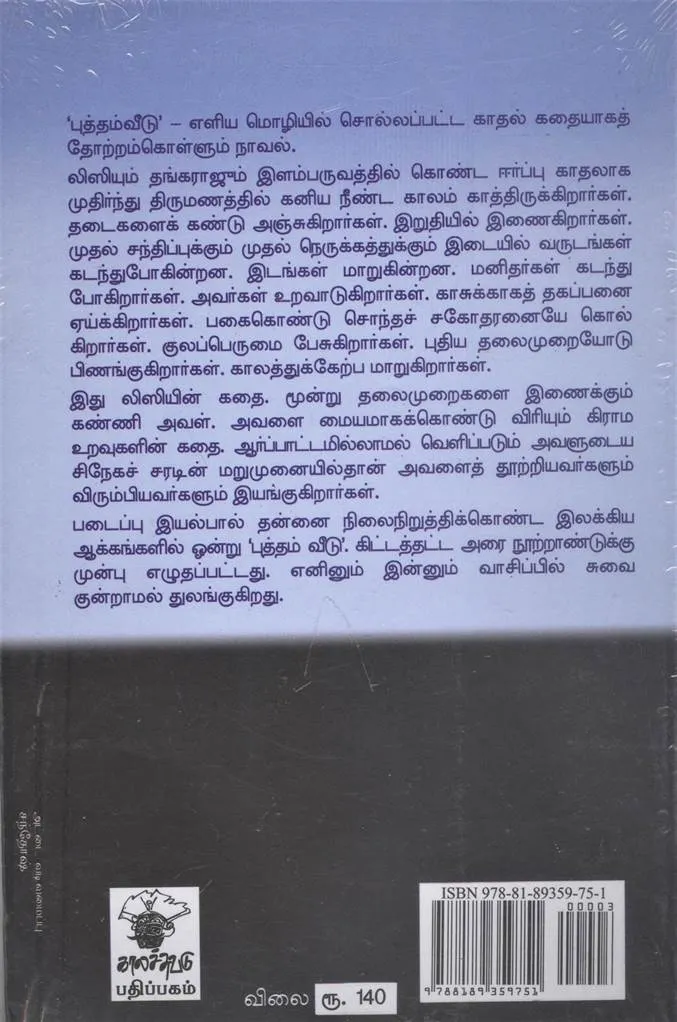 'புத்தம்வீடு' – எளிய மொழியில் சொல்லப்பட்ட காதல் கதையாகத்
தோற்றம்கொள்ளும் நாவல்.
லிஸியும் தங்கராஜும் இளம்பருவத்தில் கொண்ட ஈர்ப்பு காதலாக
முதிர்ந்து திருமணத்தில் கனிய நீண்ட காலம் காத்திருக்கிறார்கள்.
தடைகளைக் கண்டு அஞ்சுகிறார்கள். இறுதியில் இணைகிறார்கள்.
முதல் சந்திப்புக்கும் முதல் நெருக்கத்துக்கும் இடையில் வருடங்கள்
கடந்துபோகின்றன. இடங்கள் மாறுகின்றன. மனிதர்கள் கடந்து
போகிறார்கள். அவர்கள் உறவாடுகிறார்கள். காசுக்காகத் தகப்பனை
ஏய்க்கிறார்கள். பகைகொண்டு சொந்தச் சகோதரனையே கொல்
கிறார்கள். குலப்பெருமை பேசுகிறார்கள். புதிய தலைமுறையோடு
பிணங்குகிறார்கள். காலத்துக்கேற்ப மாறுகிறார்கள்.
இது லிஸியின் கதை. மூன்று தலைமுறைகளை இணைக்கும்
கண்ணி அவள். அவளை மையமாகக்கொண்டு விரியும் கிராம
உறவுகளின் கதை. ஆர்ப்பாட்டமில்லாமல் வெளிப்படும் அவளுடைய
சிநேகச் சரடின் மறுமுனையில்தான் அவளைத் தூற்றியவர்களும்
விரும்பியவர்களும் இயங்குகிறார்கள்.
படைப்பு இயல்பால் தன்னை நிலைநிறுத்திக்கொண்ட இலக்கிய
ஆக்கங்களில் ஒன்று 'புத்தம் வீடு'. கிட்டத்தட்ட அரை நூற்றாண்டுக்கு
முன்பு எழுதப்பட்டது. எனினும் இன்னும் வாசிப்பில் சுவை
குன்றாமல் துலங்குகிறது.
காலச்சுவடு
பதிப்பகம்
விலை ரூ. 140
ISBN 978-81-89359-75-1
00003
9 788189 359751